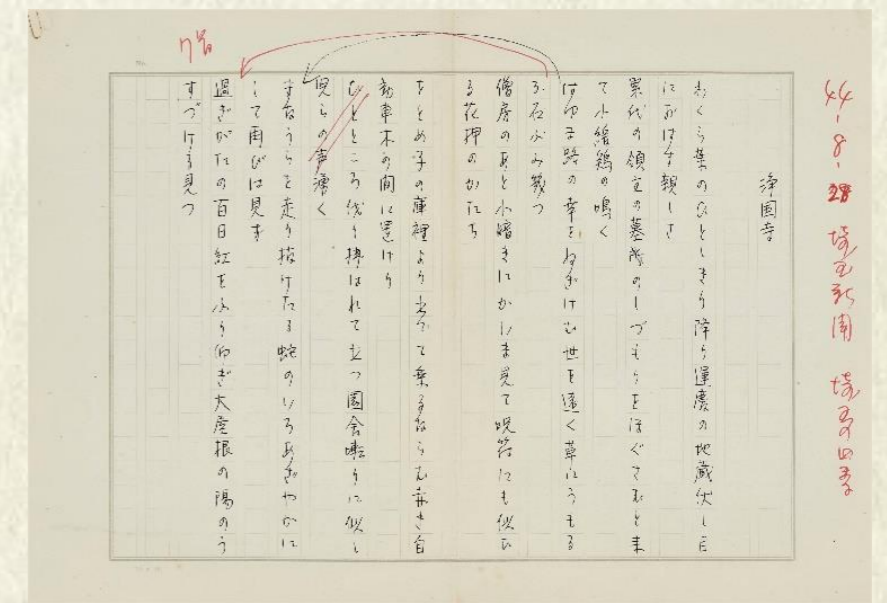 44-8-28 埼玉新聞 埼玉の四季
浄国寺
さくら葉のひとしきり降り運慶の地蔵伏し目
におはす親しさ
累代の領主の墓域のしづもりをほぐさむと来
て小綬鶏の鳴く
はゆま路の幸をねぎけむ世も遠く草にうもる
る石ぶみ幾つ
僧房のあと小暗きにかいま見て呪符にも似た
る花押のかたち
をとめ子の庫裡より出でて乗るならむ赤き自
動車木の間に置けり
ひとところ伐り拂はれて立つ園舎囀りに似し
児らの声湧く
すなうらを走り抜けたる蛇のいろあざやかに
して再びは見ず
過ぎがたの百日紅をふり仰ぎ大屋根の陽のう
すづける見つ
7首